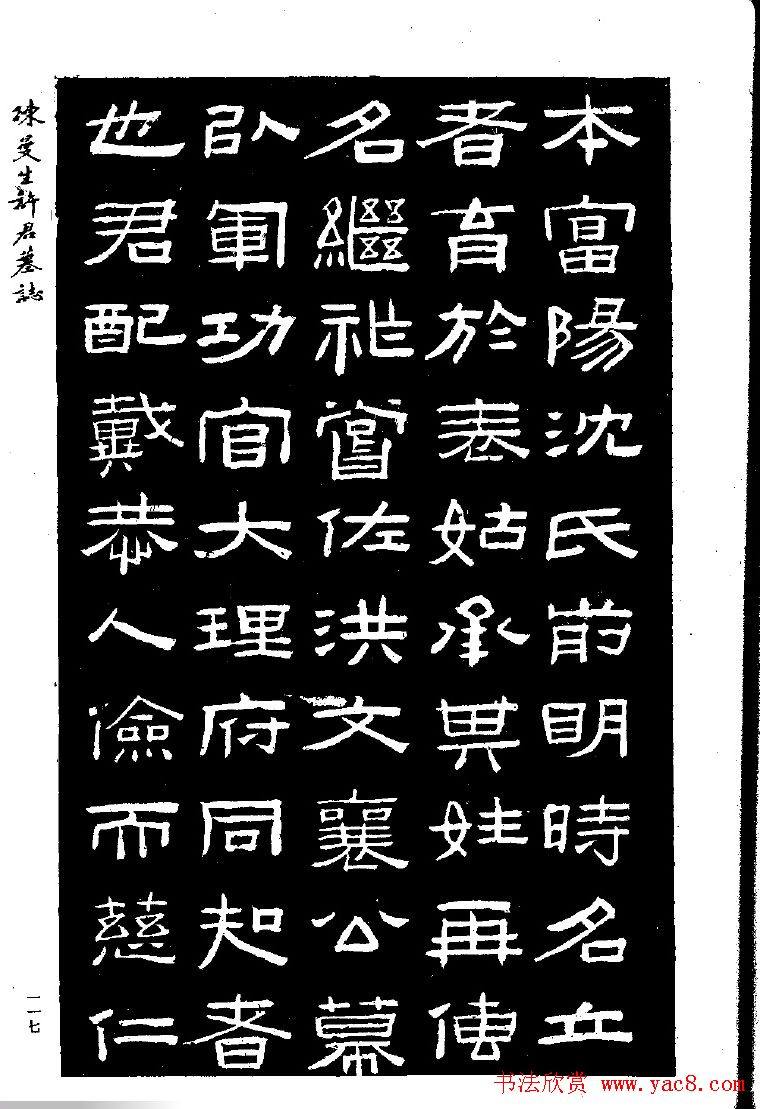 本富陽沈氏歬眀時名立
者育於表姑承其姓再傳
名繼祉嘗佐洪文襄公幕
以軍功官大理府同知者
也君配戴恭人儉而慈仁
陳曼生許君墓誌
一一七
书法欣赏 www.yac8.com